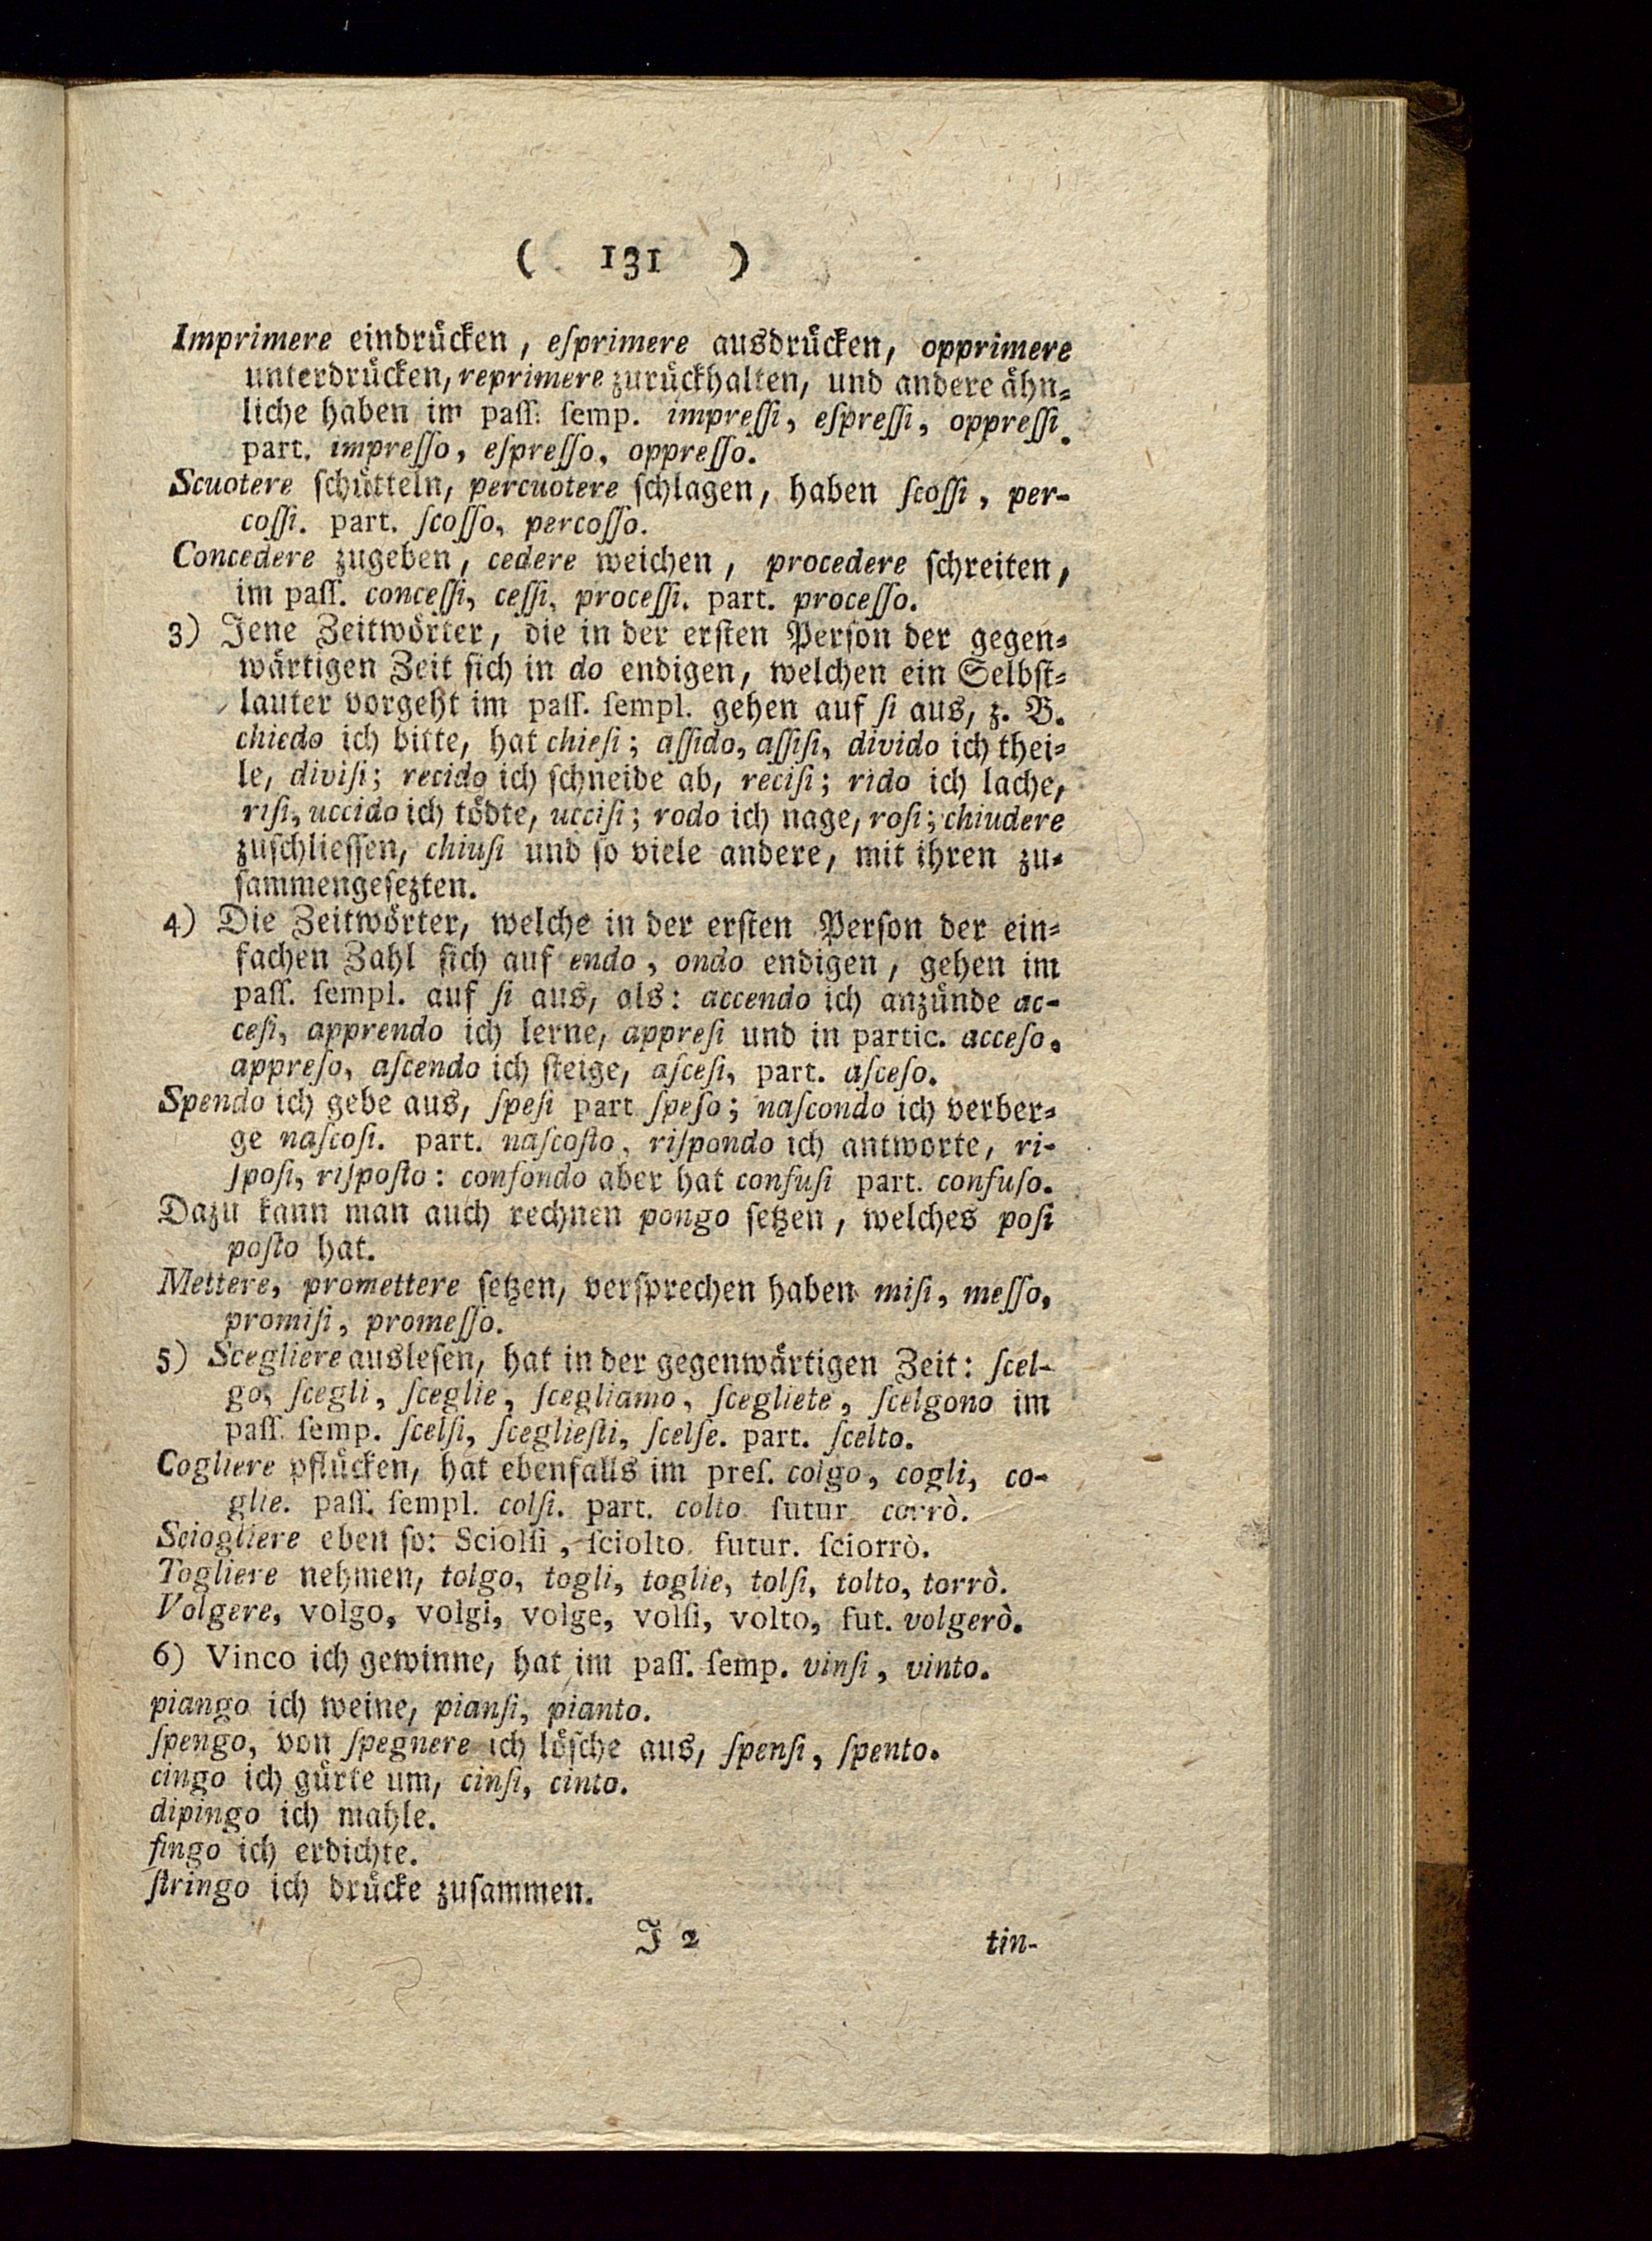 ( 131 )
Imprimere eindrücken, eſprimere ausdrücken, opprimere
unterdrücken, reprimere zurückhalten, und andere ähn⸗
liche haben im paſſ. ſemp. impreſſi, eſpreſſi, oppreſſi.
part. impreſſo, eſpreſſo, oppreſſo.
Scuotere ſchütteln, percuotere ſchlagen, haben ſcoſſi, per-
coſſi. part. ſcoſſo, percoſſo.
Concedere zugeben, cedere weichen, procedere ſchreiten,
im paſſ. conceſſi, ceſſi, proceſſi. part. proceſſo.
3) Jene Zeitwörter, die in der erſten Perſon der gegen⸗
wärtigen Zeit ſich in do endigen, welchen ein Selbſt⸗
lauter vorgeht im paſſ. ſempl. gehen auf ſi aus, z. B.
chiedo ich bitte, hat chieſi; aſſido, aſſiſi, divido ich thei⸗
le, diviſi; recido ich ſchneide ab, reciſi; rido ich lache,
riſi, uccido ich tödte, ucciſi; rodo ich nage, roſi; chiudere
zuſchlieſſen, chiuſi und ſo viele andere, mit ihren zu⸗
ſammengeſezten.
4) Die Zeitwörter, welche in der erſten Perſon der ein⸗
fachen Zahl ſich auf endo, ondo endigen, gehen im
paſſ. ſempl. auf ſi aus, als: accendo ich anzünde ac-
ceſi, apprendo ich lerne, appreſi und in partic. acceſo,
appreſo, aſcendo ich ſteige, aſceſi, part. aſceſo.
Spendo ich gebe aus, ſpeſi part ſpeſo; naſcondo ich verber⸗
ge naſcoſi. part. naſcoſto, riſpondo ich antworte, ri-
ſpoſi, riſpoſto: confondo aber hat confuſi part. confuſo.
Dazu kann man auch rechnen pongo ſetzen, welches poſi
poſto hat.
Mettere, promettere ſetzen, verſprechen haben miſi, meſſo,
promiſi, promeſſo.
5) Scegliere ausleſen, hat in der gegenwärtigen Zeit: ſcel-
go, ſcegli, ſceglie, ſcegliamo, ſcegliete, ſcelgono im
paſſ. ſemp. ſcelſi, ſceglieſti, ſcelſe. part. ſcelto.
Cogliere pflücken, hat ebenfalls im preſ. colgo, cogli, co-
glie. paſſ. ſempl. colſi. part. colto futur corrò.
Sciogliere eben ſo: Sciolſi, ſciolto. futur. ſciorrò.
Togliere nehmen, tolgo, togli, toglie, tolſi, tolto, torrò.
Volgere, volgo, volgi, volge, volſi, volto, fut. volgerò.
6) Vinco ich gewinne, hat im paſſ. ſemp. vinſi, vinto.
piango ich weine, pianſi, pianto.
ſpengo, von ſpegnere ich löſche aus, ſpenſi, ſpento.
cingo ich gürte um, cinſi, cinto.
dipingo ich mahle.
fingo ich erdichte.
ſtringo ich drücke zuſammen.
J 2 tin-